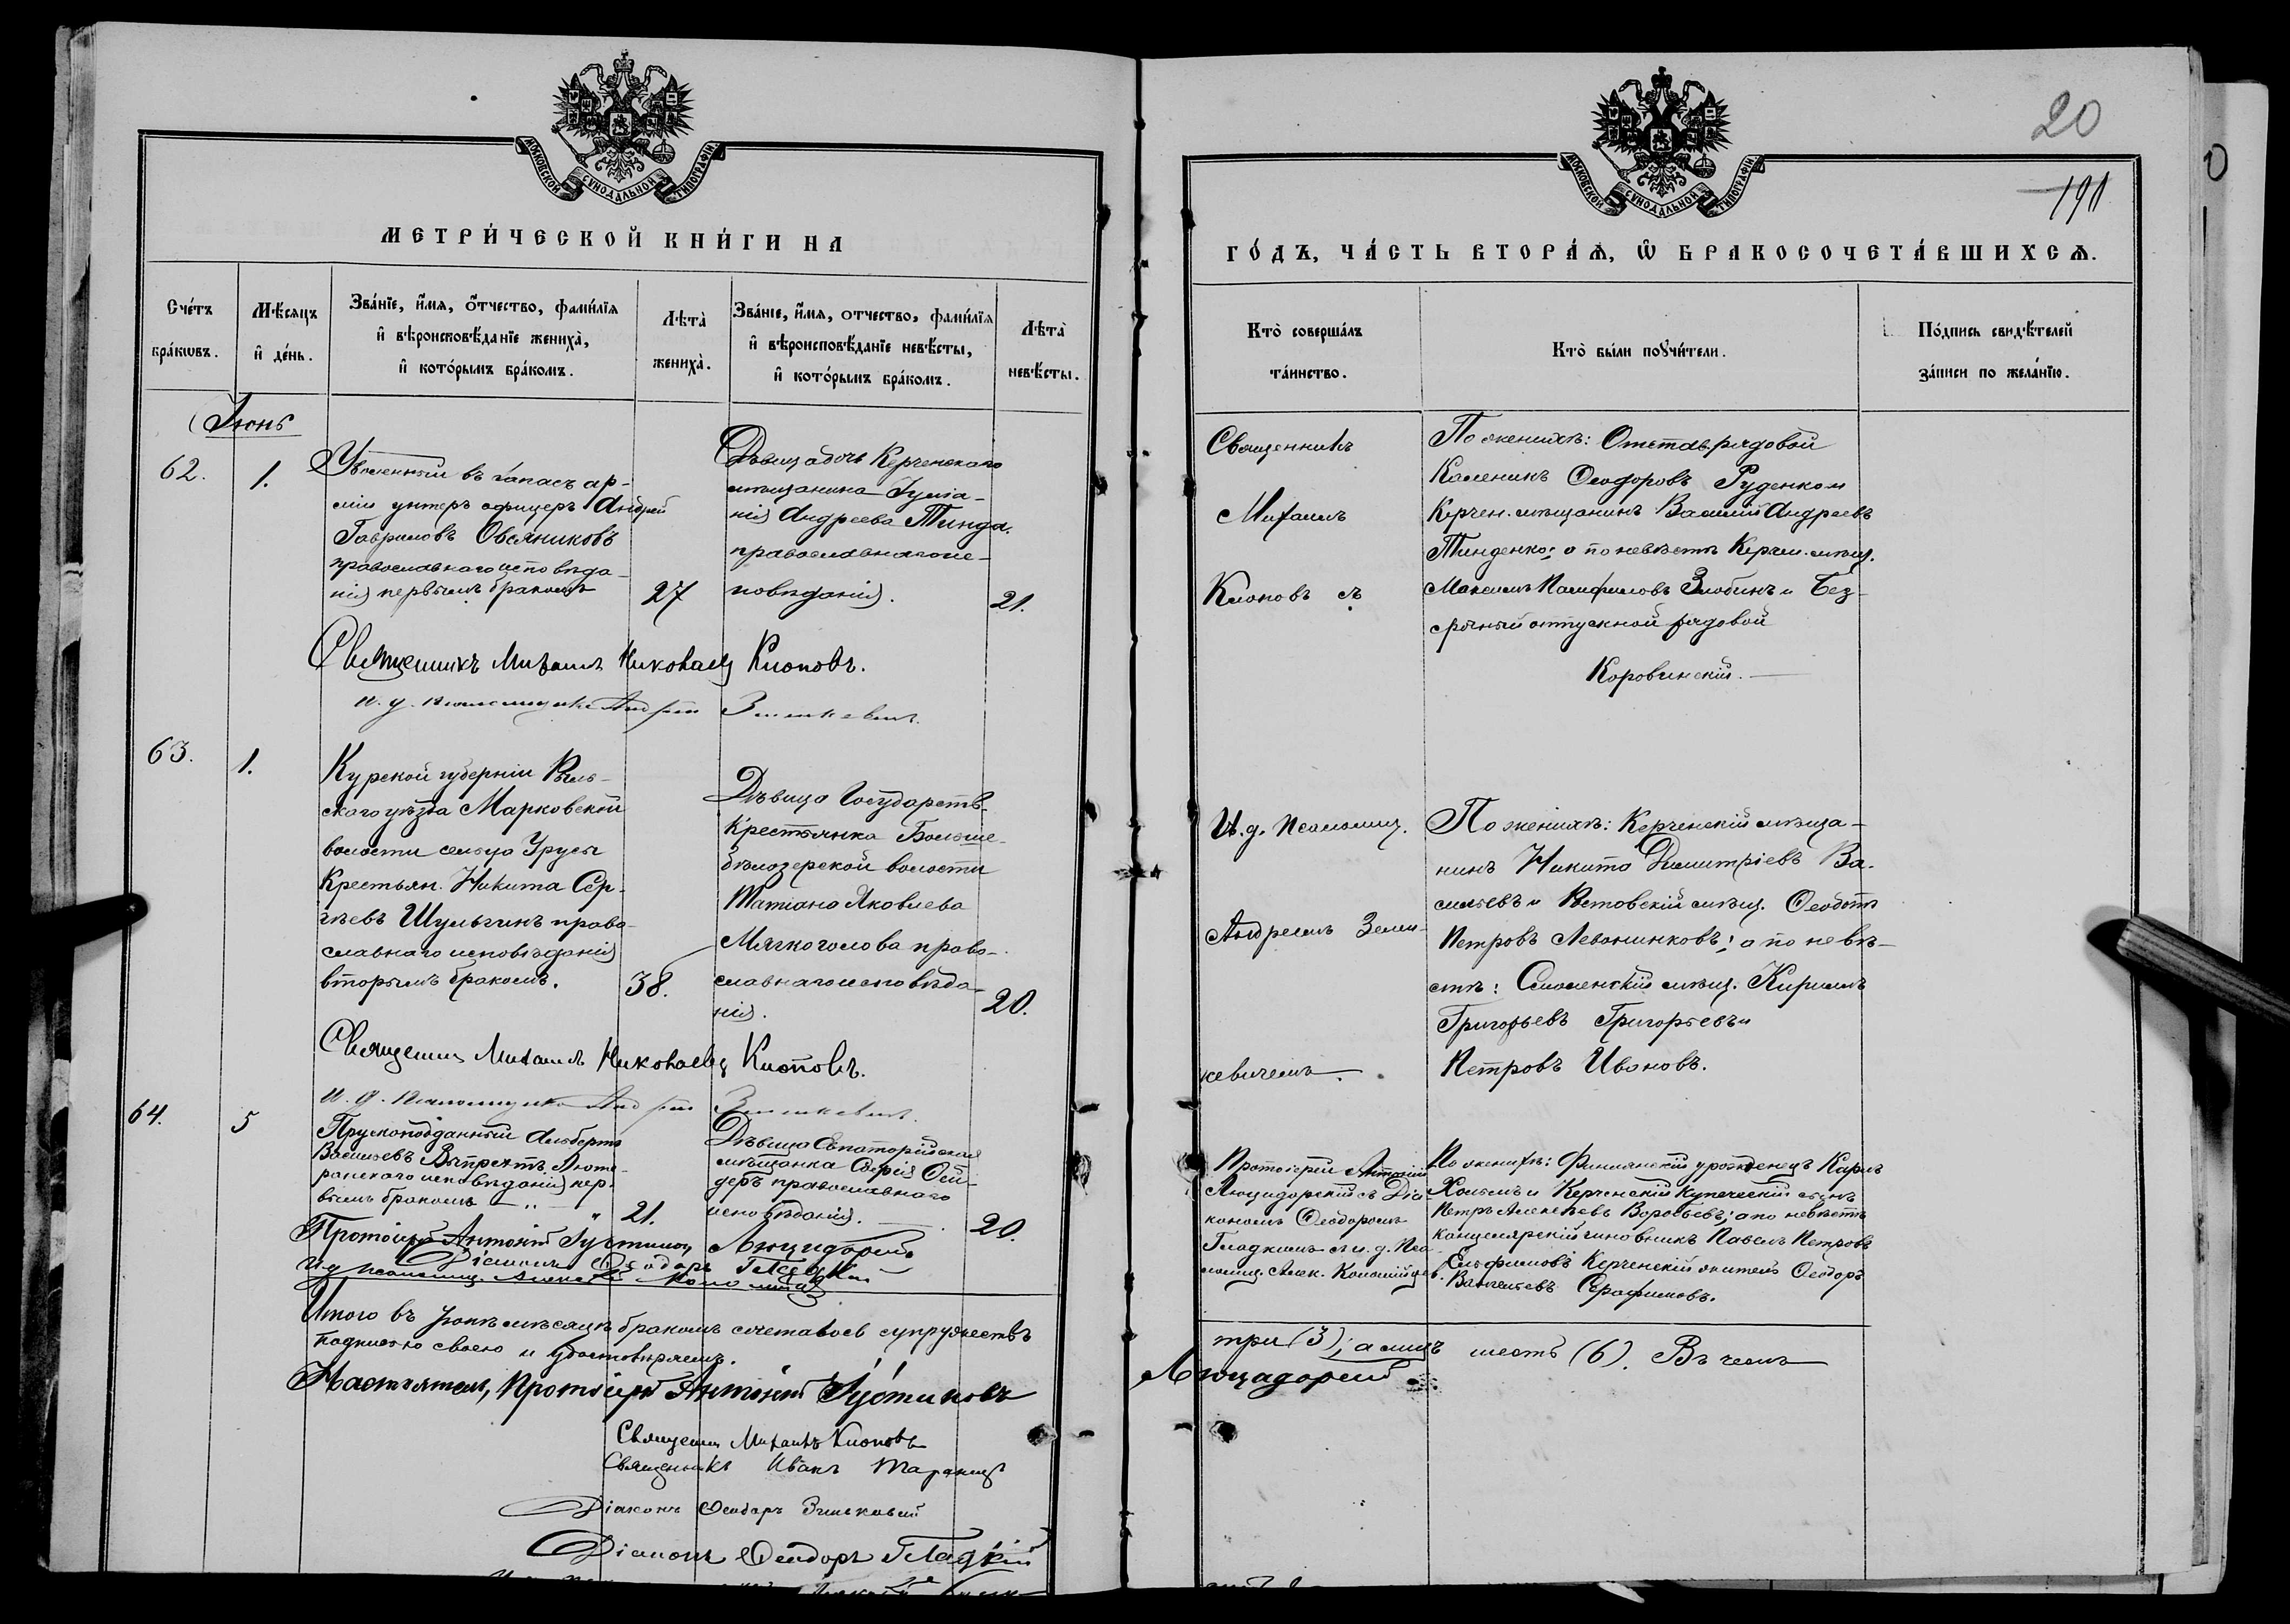 МОСКОВСКОЙ СѴНОДАЛЬНОЙ ТИПОГРАФІИ
МЕТРИ́ЧЕСКОЙ КНИ́ГИ НА
Сче́тъ бра́кѡвъ.
Мѣ́сяцъ и҆ де́нь.
Зва́нїе, и҆́мя, ѻ҆́тчество, фами́лїя
и҆ вѣроисповѣ́данїе жениха̀,
и҆ кото́рымъ бра́комъ.
Лѣта̀ жениха̀.
Зва́нїе, и҆́мя, отчество, фами́лїя
и҆ вѣроисповѣ́данїе невѣ́сты,
и҆ кото́рымъ бра́комъ.
Лѣта̀ невѣ́сты.
Іюнь
62.
1.
Уволенный въ запасъ ар-
міи унтеръ офицеръ Андрей
Гавриловъ Овсяниковъ
православнаго исповѣда-
нія первымъ бракомъ
27
Дѣвица дочь Керченскаго
мѣщанина Іуліа-
нія Андреева Тинда.
православнаго ис-
повѣданія.
21.
Священникъ Михаилъ Николаевъ Клоповъ.
и. д. псаломщика Андрей Зенькевичъ.
63.
1.
Курской губерніи Рыль-
скаго уѣзда Марковской
волости сельца Урусы
Крестьян. Никита Сер-
гѣевъ Шульгинъ право-
славнаго исповѣданія
вторымъ бракомъ.
38.
Дѣвица Государств.
Крестьянка Больше-
бѣлозерской волости
Татіана Яковлева
Мягкоголова право-
славнаго исповѣда-
нія.
20.
Священникъ Михаилъ Николаевъ Клоповъ.
и. д. псаломщика Андрей Зенькевичъ.
64.
5
Прускоподданный Альбертъ
Васильевъ Люте-
ранскаго исповѣданія пер-
вымъ бракомъ
21.
Дѣвица Евпаторійская
мѣщанка Сей-
деръ православнаго
исповѣданія.
20.
Протоіерей Антоній Іустиновъ Люцидорскій
Діаконъ Ѳеодоръ Гладкій
И. д. псаломщ. Алексѣй
Итого въ Іюнѣ мѣсяцѣ бракомъ сочеталось супружествъ
подписью своею и удостовѣряемъ.
Настоятель, Протоіерей Антоній Іустиновъ
Священн. Михаилъ Клоповъ
Священникъ Иванъ
Діаконъ Ѳеодоръ Зеньковскій
Діаконъ Ѳеодоръ Гладкій
МОСКОВСКОЙ СѴНОДАЛЬНОЙ ТИПОГРАФІИ
20
191
ГО́ДЪ, ЧА́СТЬ ВТОРА́Ѧ, Ѡ҆ БРАКОСОЧЕТА́ВШИХСѦ.
Кто̀ соверша́лъ та́инство.
Кто̀ бы́ли поꙋчи́тели.
По́дпись свидѣ́телей за́писи по жела́нїю.
Священникъ
Михаилъ
Клоповъ съ
По женихѣ: Отстав. рядовой
Каленикъ Ѳеодоровъ Руденко и
Керчен. мѣщанинъ Василій Андреевъ
Тинденко; а по невѣстѣ Керчен. мѣщ.
Максимъ Памфиловъ Злобинъ и Без-
срочный отпускной рядовой
Коровинскій.
И. д. Псаломщ.
Андреемъ Зень-
кевичемъ.
По женихѣ: Керченскій мѣща-
нинъ Никита Димитріевъ Ва-
сильевъ и Ростовскій мѣщ. Ѳеодотъ
Петровъ Леванинковъ; а по невѣ-
стѣ: Смоленскій мѣщ. Кириллъ
Григорьевъ Григорьевъ и
Петровъ Ивановъ.
Протоіерей Антоній
Люцидорскій съ Діа-
кономъ Ѳеодоромъ
Гладкимъ и и. д. Пса-
ломщ. Алек. Коломійцев.
По женихѣ: Финлянскій уроженецъ Карлъ
Хольмъ и Керченскій купеческій сынъ
Петръ Алексѣевъ Воробьевъ; а по невѣстѣ
канцелярскій чиновникъ Павелъ Петровъ
Ельфимовъ Керченскій житель Ѳеодоръ
Васильевъ Серафимовъ.
три (3); а лицъ шесть (6). Въ чемъ
Люцидорскій